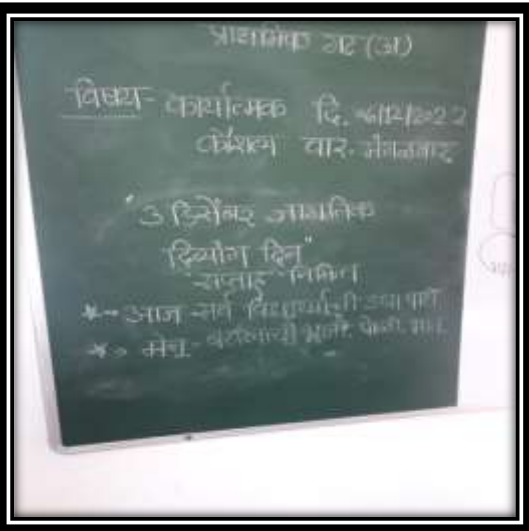 प्राथमिक गट (अ)
विषय- कार्यात्मक दि. ०६/१२/२०२२
कौशल्य वार- मंगळवार
"३ डिसेंबर जागतिक
दिव्यांग दिन"
सप्ताह निमित्त
* - आज सर्व विद्यार्थ्यांची
* > मेनू -